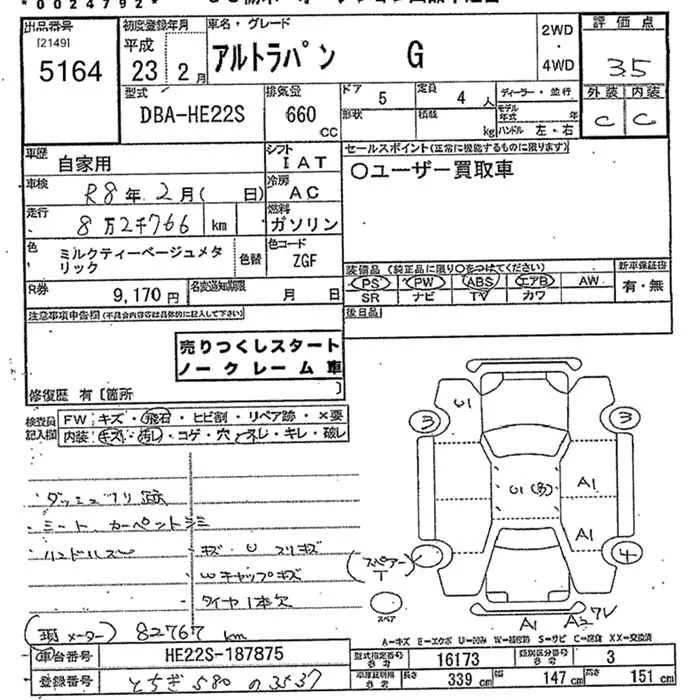 *0024792*
出品番号
[2149]
5164
初度登録年月
平成
23年2月
車名・グレード
アルトラパン G
2WD
・
4WD
評価点
3.5
外装 内装
C C
型式
DBA-HE22S
排気量
660
CC
ドア 5
定員 4人
形状
積載 kg
ディーラー・並行
モデル年式 年
ハンドル 左・右
車歴
自家用
シフト
IAT
車検
R8年2月( 日)
冷房
AC
走行
8万2千766 km
燃料
ガソリン
色
ミルクティーベージュメタリック
色替
色コード
ZGF
R券
9,170円
名変通知期限
月 日
セールスポイント(正常に機能するものに限ります)
○ユーザー買取車
装備品 (純正品に限り○をつけてください)
PS PW ABS エアB AW
SR ナビ TV カワ
新車保証書
有・無
後日品
注意事項申告欄(不具合内容等は具体的に記入して下さい)
売りつくしスタート
ノークレーム車
修復歴 有〔箇所 〕
検査員記入欄
FW:キズ・飛石・ヒビ割・リペア跡・×要
内装:キズ・汚レ・コゲ・穴・ネレ・キレ・破レ
ダッシュノリ跡
シート、カーペットシミ
ハンドルスレ
キズ・U スリキズ
Wキャップキズ
タイヤ1本欠
(現メーター) 82767 km
U1
3
3
U1(多)
A1
A1
(スペアーT)
4
スペア
A1
A2 ワレ
A=キズ E=エクボ U=凹み W=補修跡 S=サビ C=腐食 XX=交換済
車台番号
HE22S-187875
型式指定番号
参考
16173
類別区分番号
参考
3
登録番号
とちぎ 580 の 3537
車庫証明用
参考
長さ 339 cm
幅 147 cm
高さ 151 cm